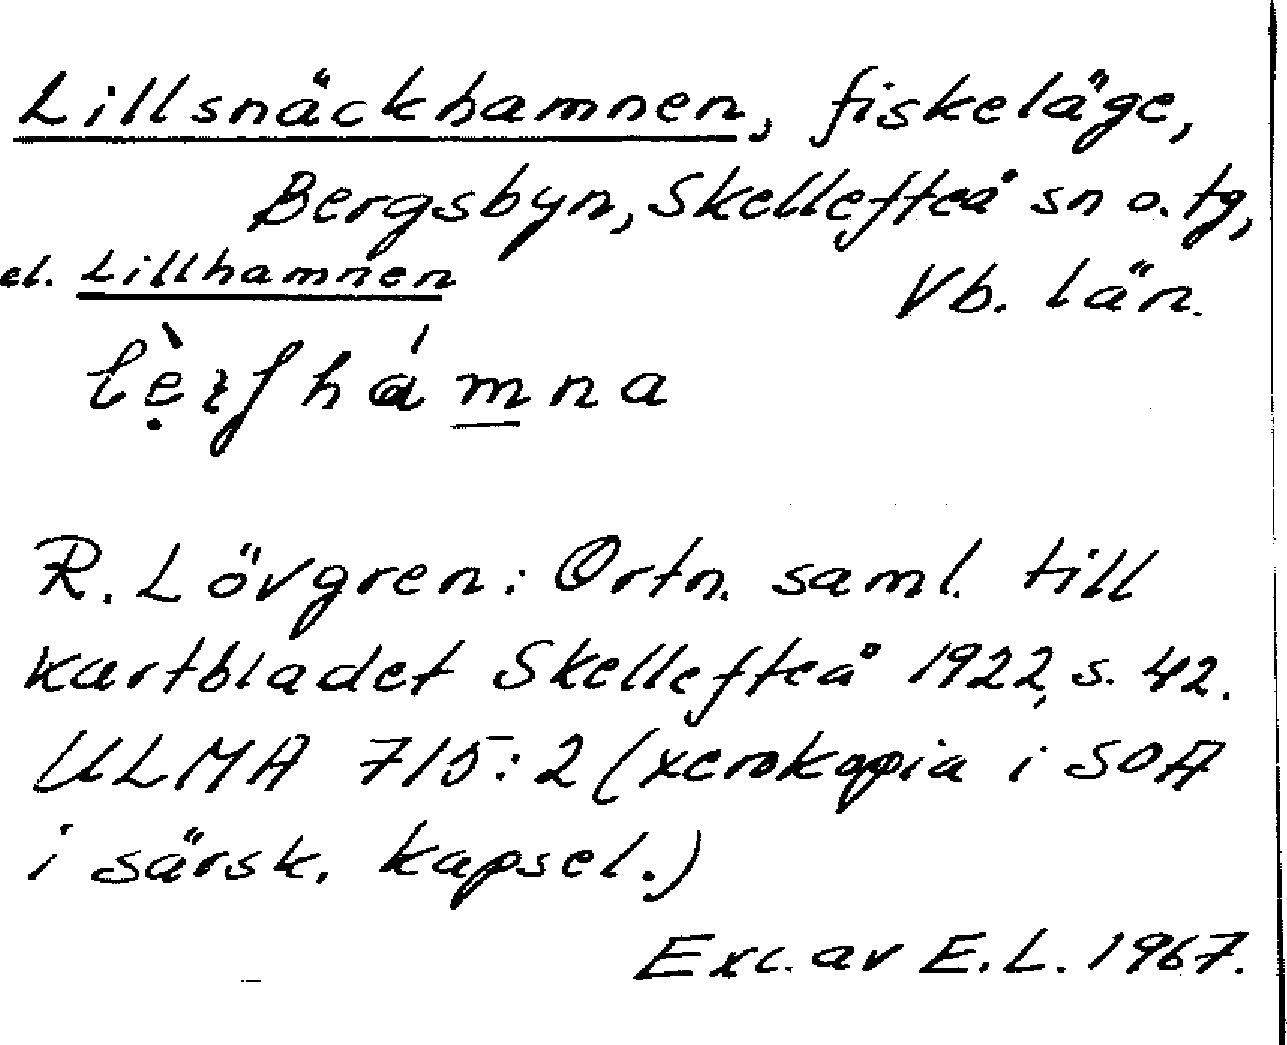 Lillsnäckhamnen, fiskeläge,
Bergsbyn, Skellefteå sn o. tg,
el. Lillhamnen
Vb. län.
R. Lövgren: Ortn. saml. till
kartbladet Skellefteå 1922, s. 42.
ULMA 715:2 (xerokopia i SOA
i särsk. kapsel.)
Exc. av E.L. 1967.